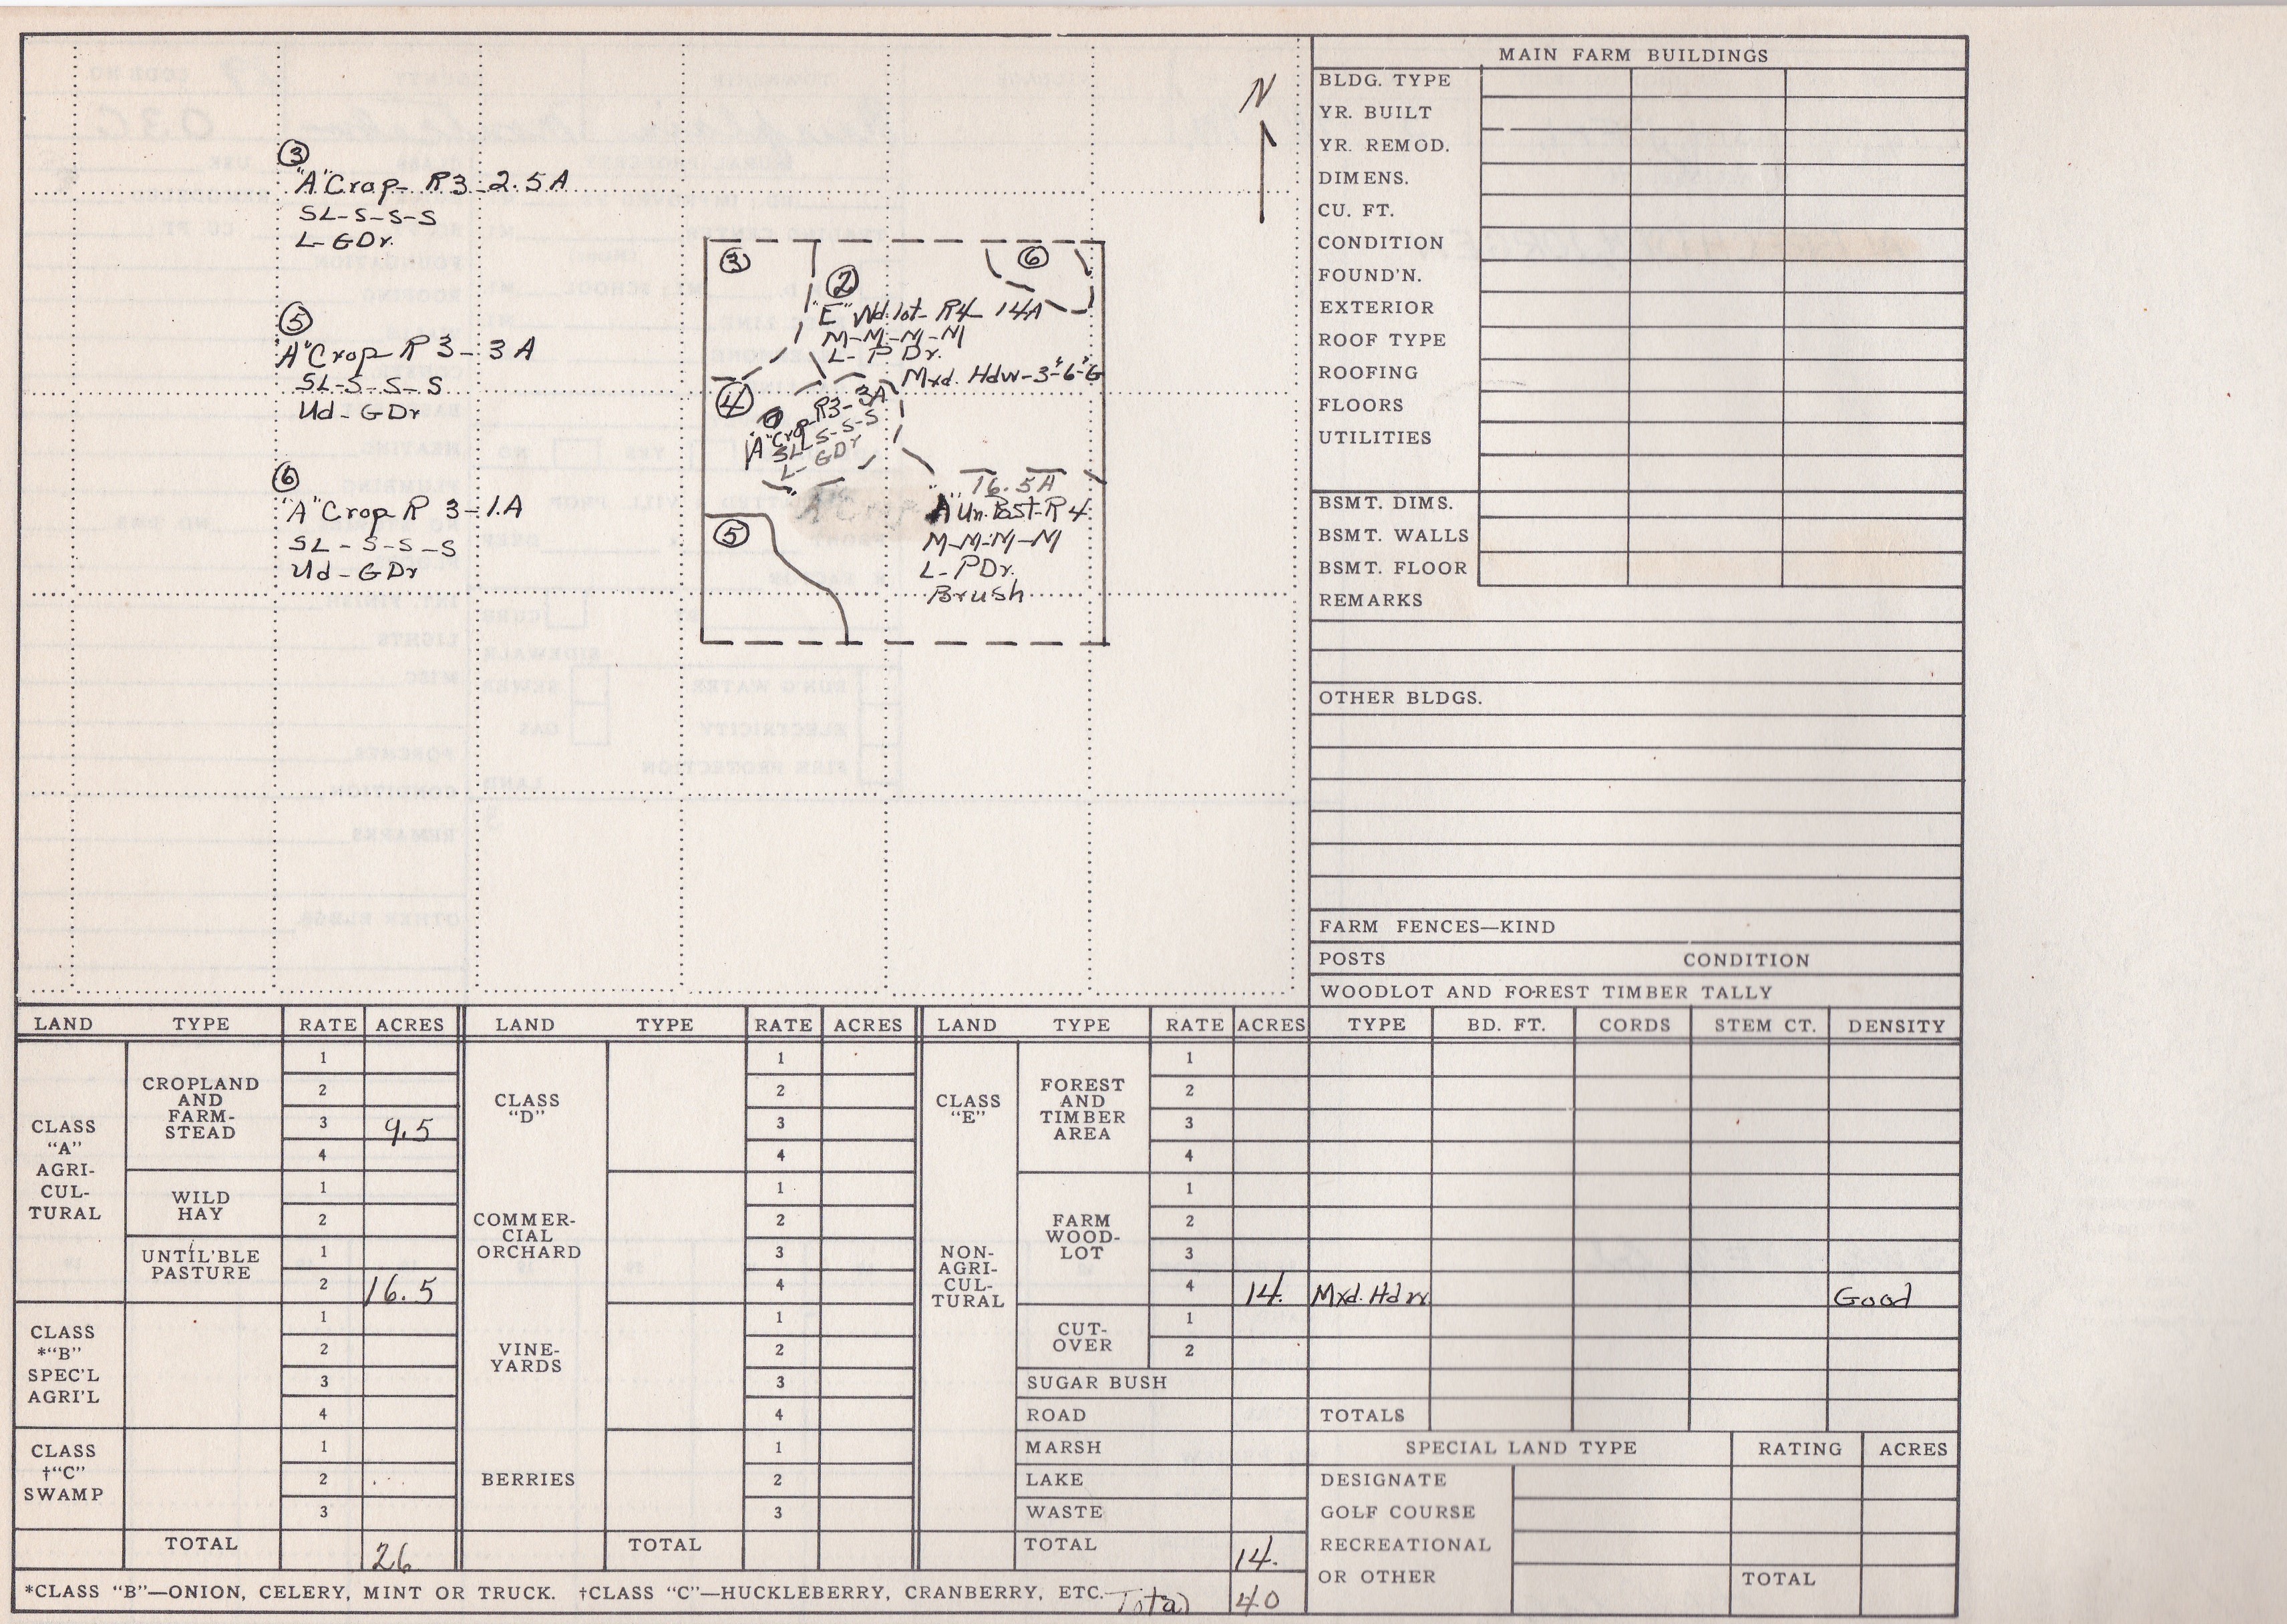 N
③
"A" Crop- R3-2.5A
SL-S-S-S
L-GDr.
⑤
"A" Crop R 3-3A
SL-S-S-S
Ud-GDr
⑥
"A" Crop R 3-1.A
SL-S-S-S
Ud-GDr
③
⑥
②
"E" Wd.lot-R4-14A
M-M-M-M
L-P Dr.
Mxd. Hdw-3"-6"-G
④
R3-3A
"A" Crop
SL-S-S-S
L-GDr
16.5A
"A" Un.Past-R4
M-M-M-M
L-PDr.
Brush
⑤
MAIN FARM BUILDINGS
BLDG. TYPE
YR. BUILT
YR. REMOD.
DIMENS.
CU. FT.
CONDITION
FOUND'N.
EXTERIOR
ROOF TYPE
ROOFING
FLOORS
UTILITIES
BSMT. DIMS.
BSMT. WALLS
BSMT. FLOOR
REMARKS
OTHER BLDGS.
FARM FENCES—KIND
POSTS CONDITION
WOODLOT AND FOREST TIMBER TALLY
LAND TYPE RATE ACRES LAND TYPE RATE ACRES LAND TYPE RATE ACRES TYPE BD. FT. CORDS STEM CT. DENSITY
CLASS
"A"
AGRI-
CUL-
TURAL
CROPLAND
AND
FARM-
STEAD
1
2
3 9.5
4
WILD
HAY
1
2
UNTIL'BLE
PASTURE
1
2 16.5
CLASS
*"B"
SPEC'L
AGRI'L
1
2
3
4
CLASS
†"C"
SWAMP
1
2
3
TOTAL 26
CLASS
"D"
COMMER-
CIAL
ORCHARD
1
2
3
4
1
2
3
4
VINE-
YARDS
1
2
3
4
BERRIES
1
2
3
TOTAL
CLASS
"E"
NON-
AGRI-
CUL-
TURAL
FOREST
AND
TIMBER
AREA
1
2
3
4
FARM
WOOD-
LOT
1
2
3
4 14. Mxd. Hdw. Good
CUT-
OVER
1
2
SUGAR BUSH
ROAD
MARSH
LAKE
WASTE
TOTAL 14.
TOTALS
SPECIAL LAND TYPE RATING ACRES
DESIGNATE
GOLF COURSE
RECREATIONAL
OR OTHER
TOTAL
*CLASS "B"—ONION, CELERY, MINT OR TRUCK. †CLASS "C"—HUCKLEBERRY, CRANBERRY, ETC. Total 40